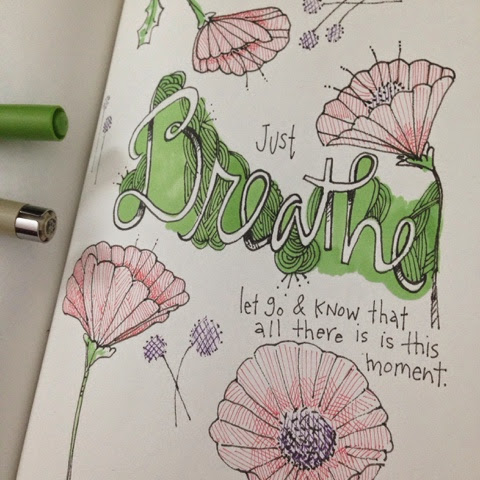 Just
Breathe
let go & know that
all there is is this
moment.